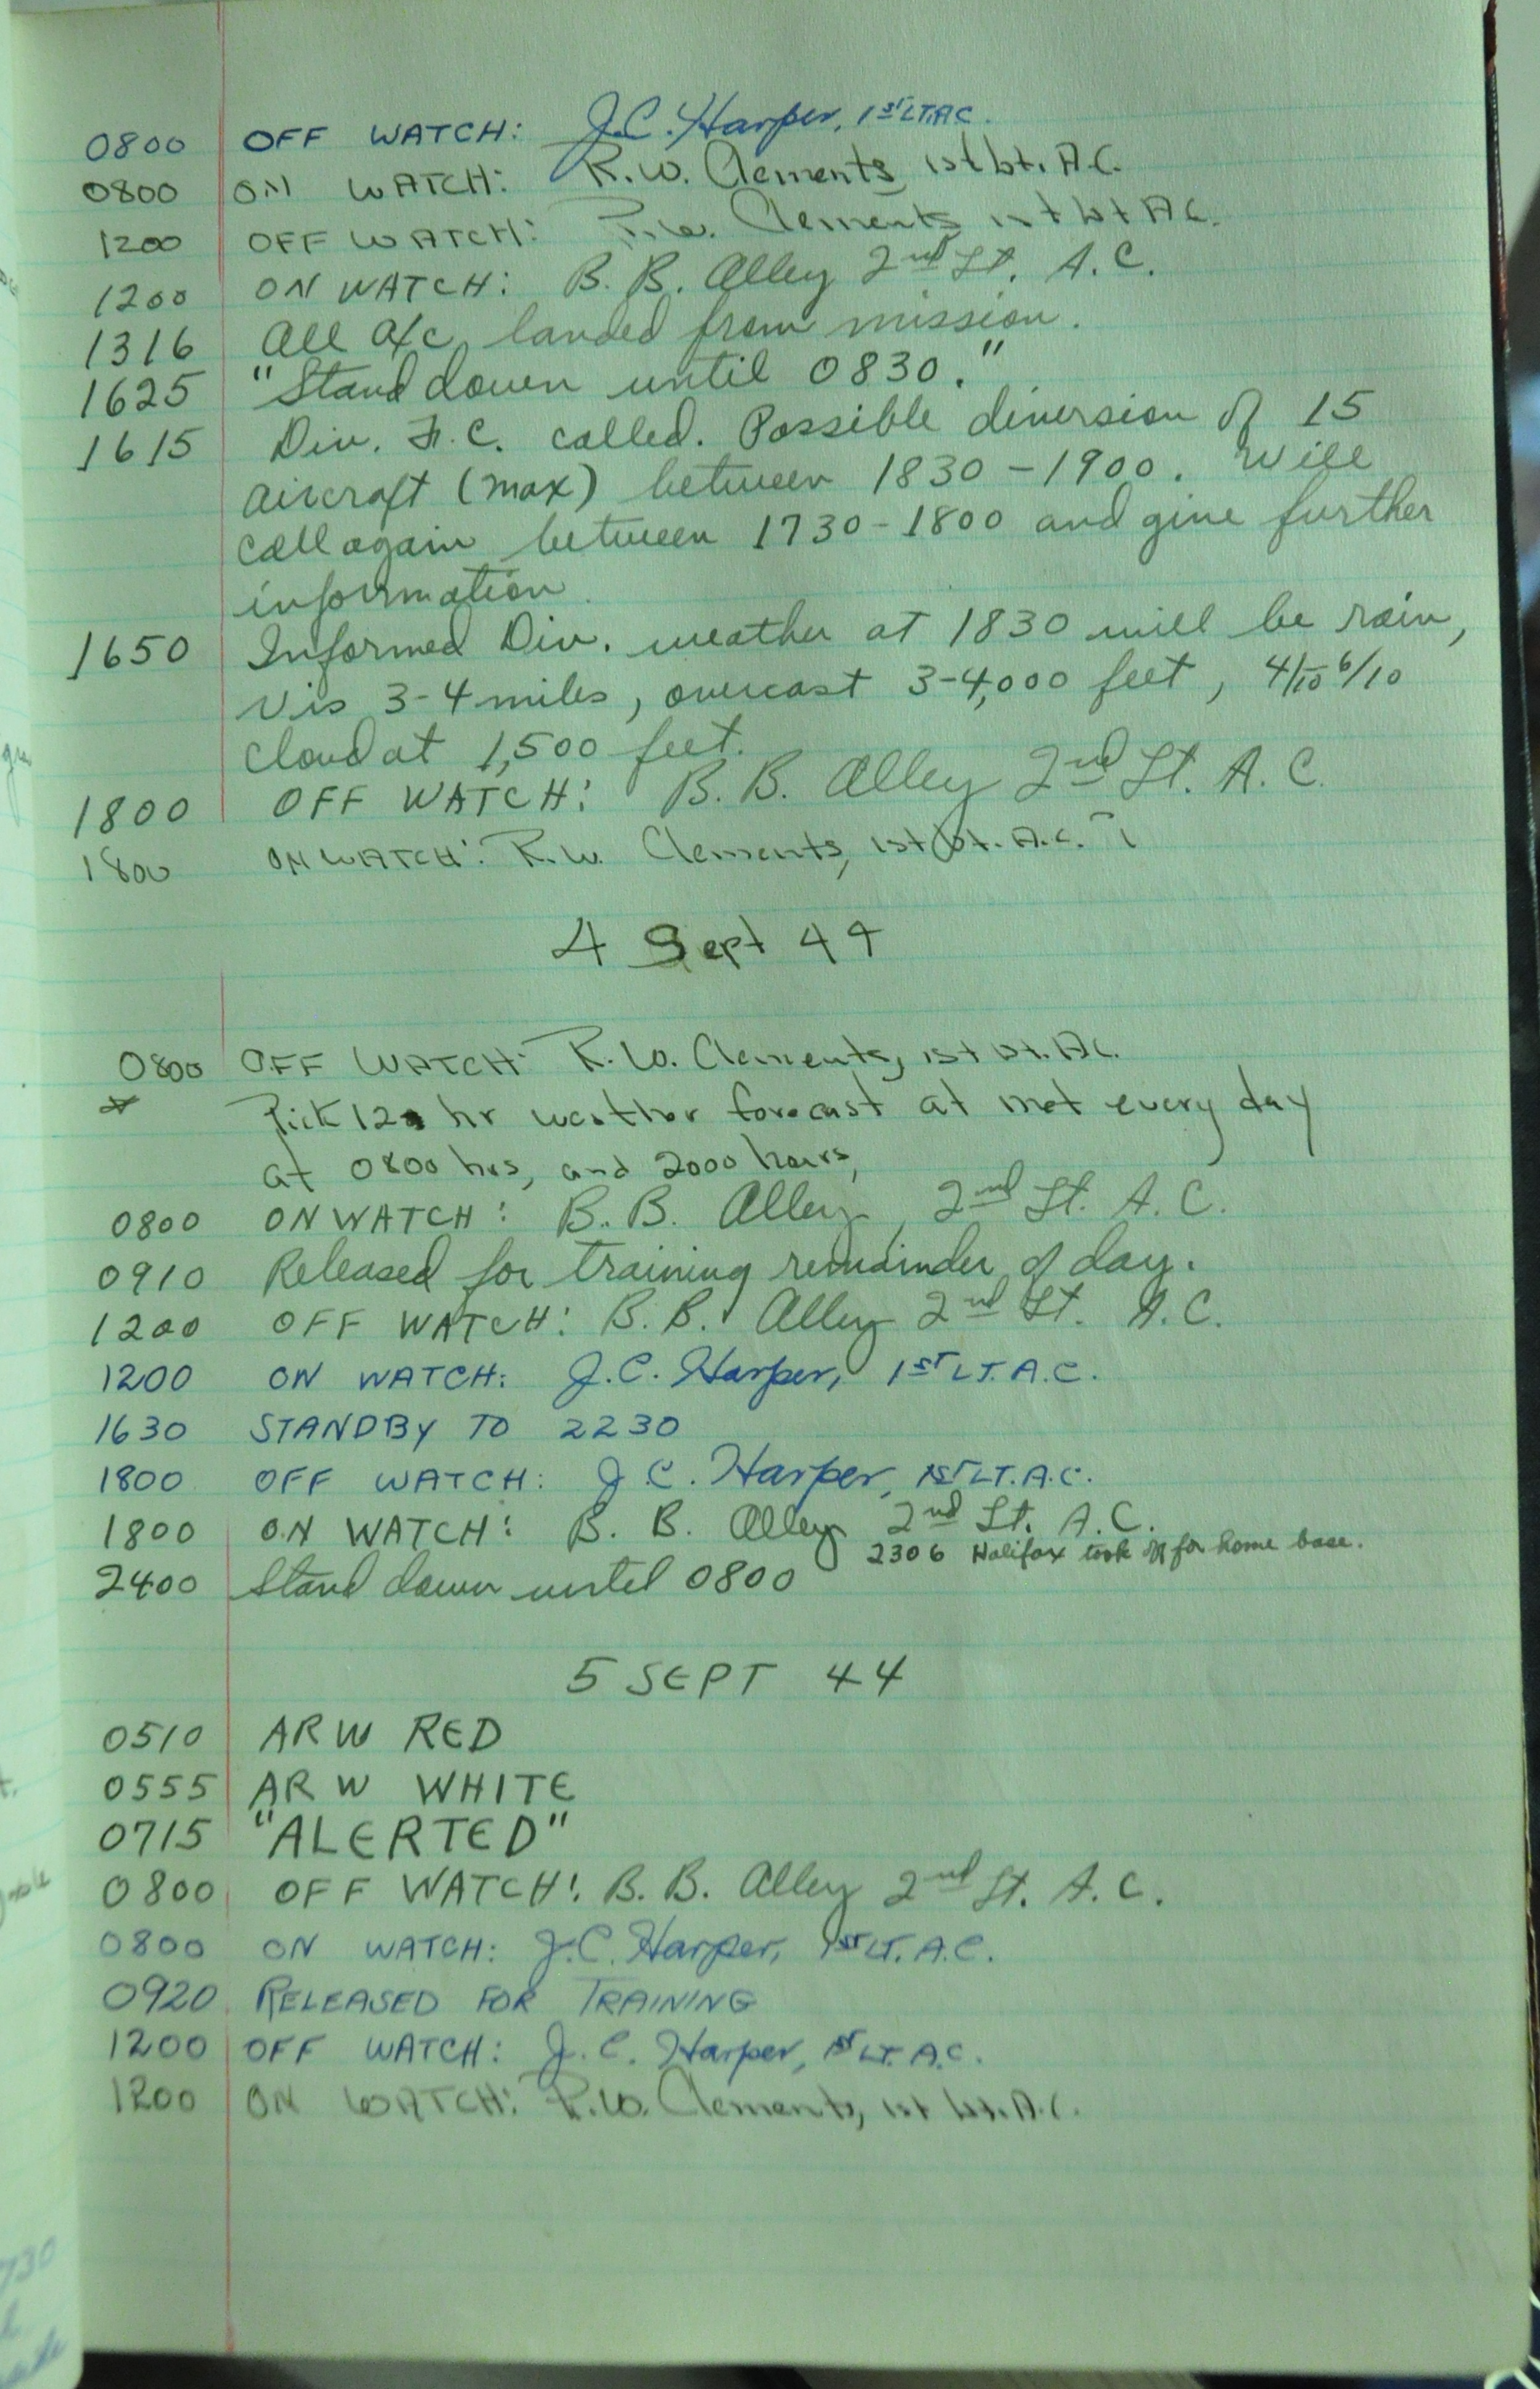 0800 OFF WATCH: J.C. Harper, 1ST LT. A.C.
0800 ON WATCH: R.W. Clements, 1st Lt. A.C.
1200 OFF WATCH: R.W. Clements 1st Lt A.C.
1200 ON WATCH: B. B. Alley 2nd Lt. A.C.
1316 All a/c landed from mission.
1625 "Stand down until 0830."
1615 Div. F.C. called. Possible diversion of 15
aircraft (max) between 1830-1900. Will
call again between 1730-1800 and give further
information.
1650 Informed Div. weather at 1830 will be rain,
vis 3-4 miles, overcast 3-4,000 feet, 4/10 6/10
cloud at 1,500 feet.
1800 OFF WATCH: B. B. Alley 2nd Lt. A.C.
1800 ON WATCH: R.W. Clements, 1st Lt. A.C.
4 Sept 44
0800 OFF WATCH: R.W. Clements, 1st Lt. A.C.
Pick 12 hr weather forecast at met every day
at 0800 hrs, and 2000 hours,
0800 ON WATCH: B. B. Alley, 2nd Lt. A.C.
0910 Released for training remainder of day.
1200 OFF WATCH: B. B. Alley 2nd Lt. A.C.
1200 ON WATCH: J.C. Harper, 1ST LT. A.C.
1630 STANDBY TO 2230
1800 OFF WATCH: J.C. Harper, 1ST LT. A.C.
1800 ON WATCH: B. B. Alley 2nd Lt. A.C.
2306 Halifax took off for home base.
2400 Stand down until 0800
5 SEPT 44
0510 ARW RED
0555 ARW WHITE
0715 "ALERTED"
0800 OFF WATCH: B. B. Alley 2nd Lt. A.C.
0800 ON WATCH: J.C. Harper, 1ST LT. A.C.
0920 RELEASED FOR TRAINING
1200 OFF WATCH: J.C. Harper, 1ST LT. A.C.
1200 ON WATCH: R.W. Clements, 1st Lt. A.C.